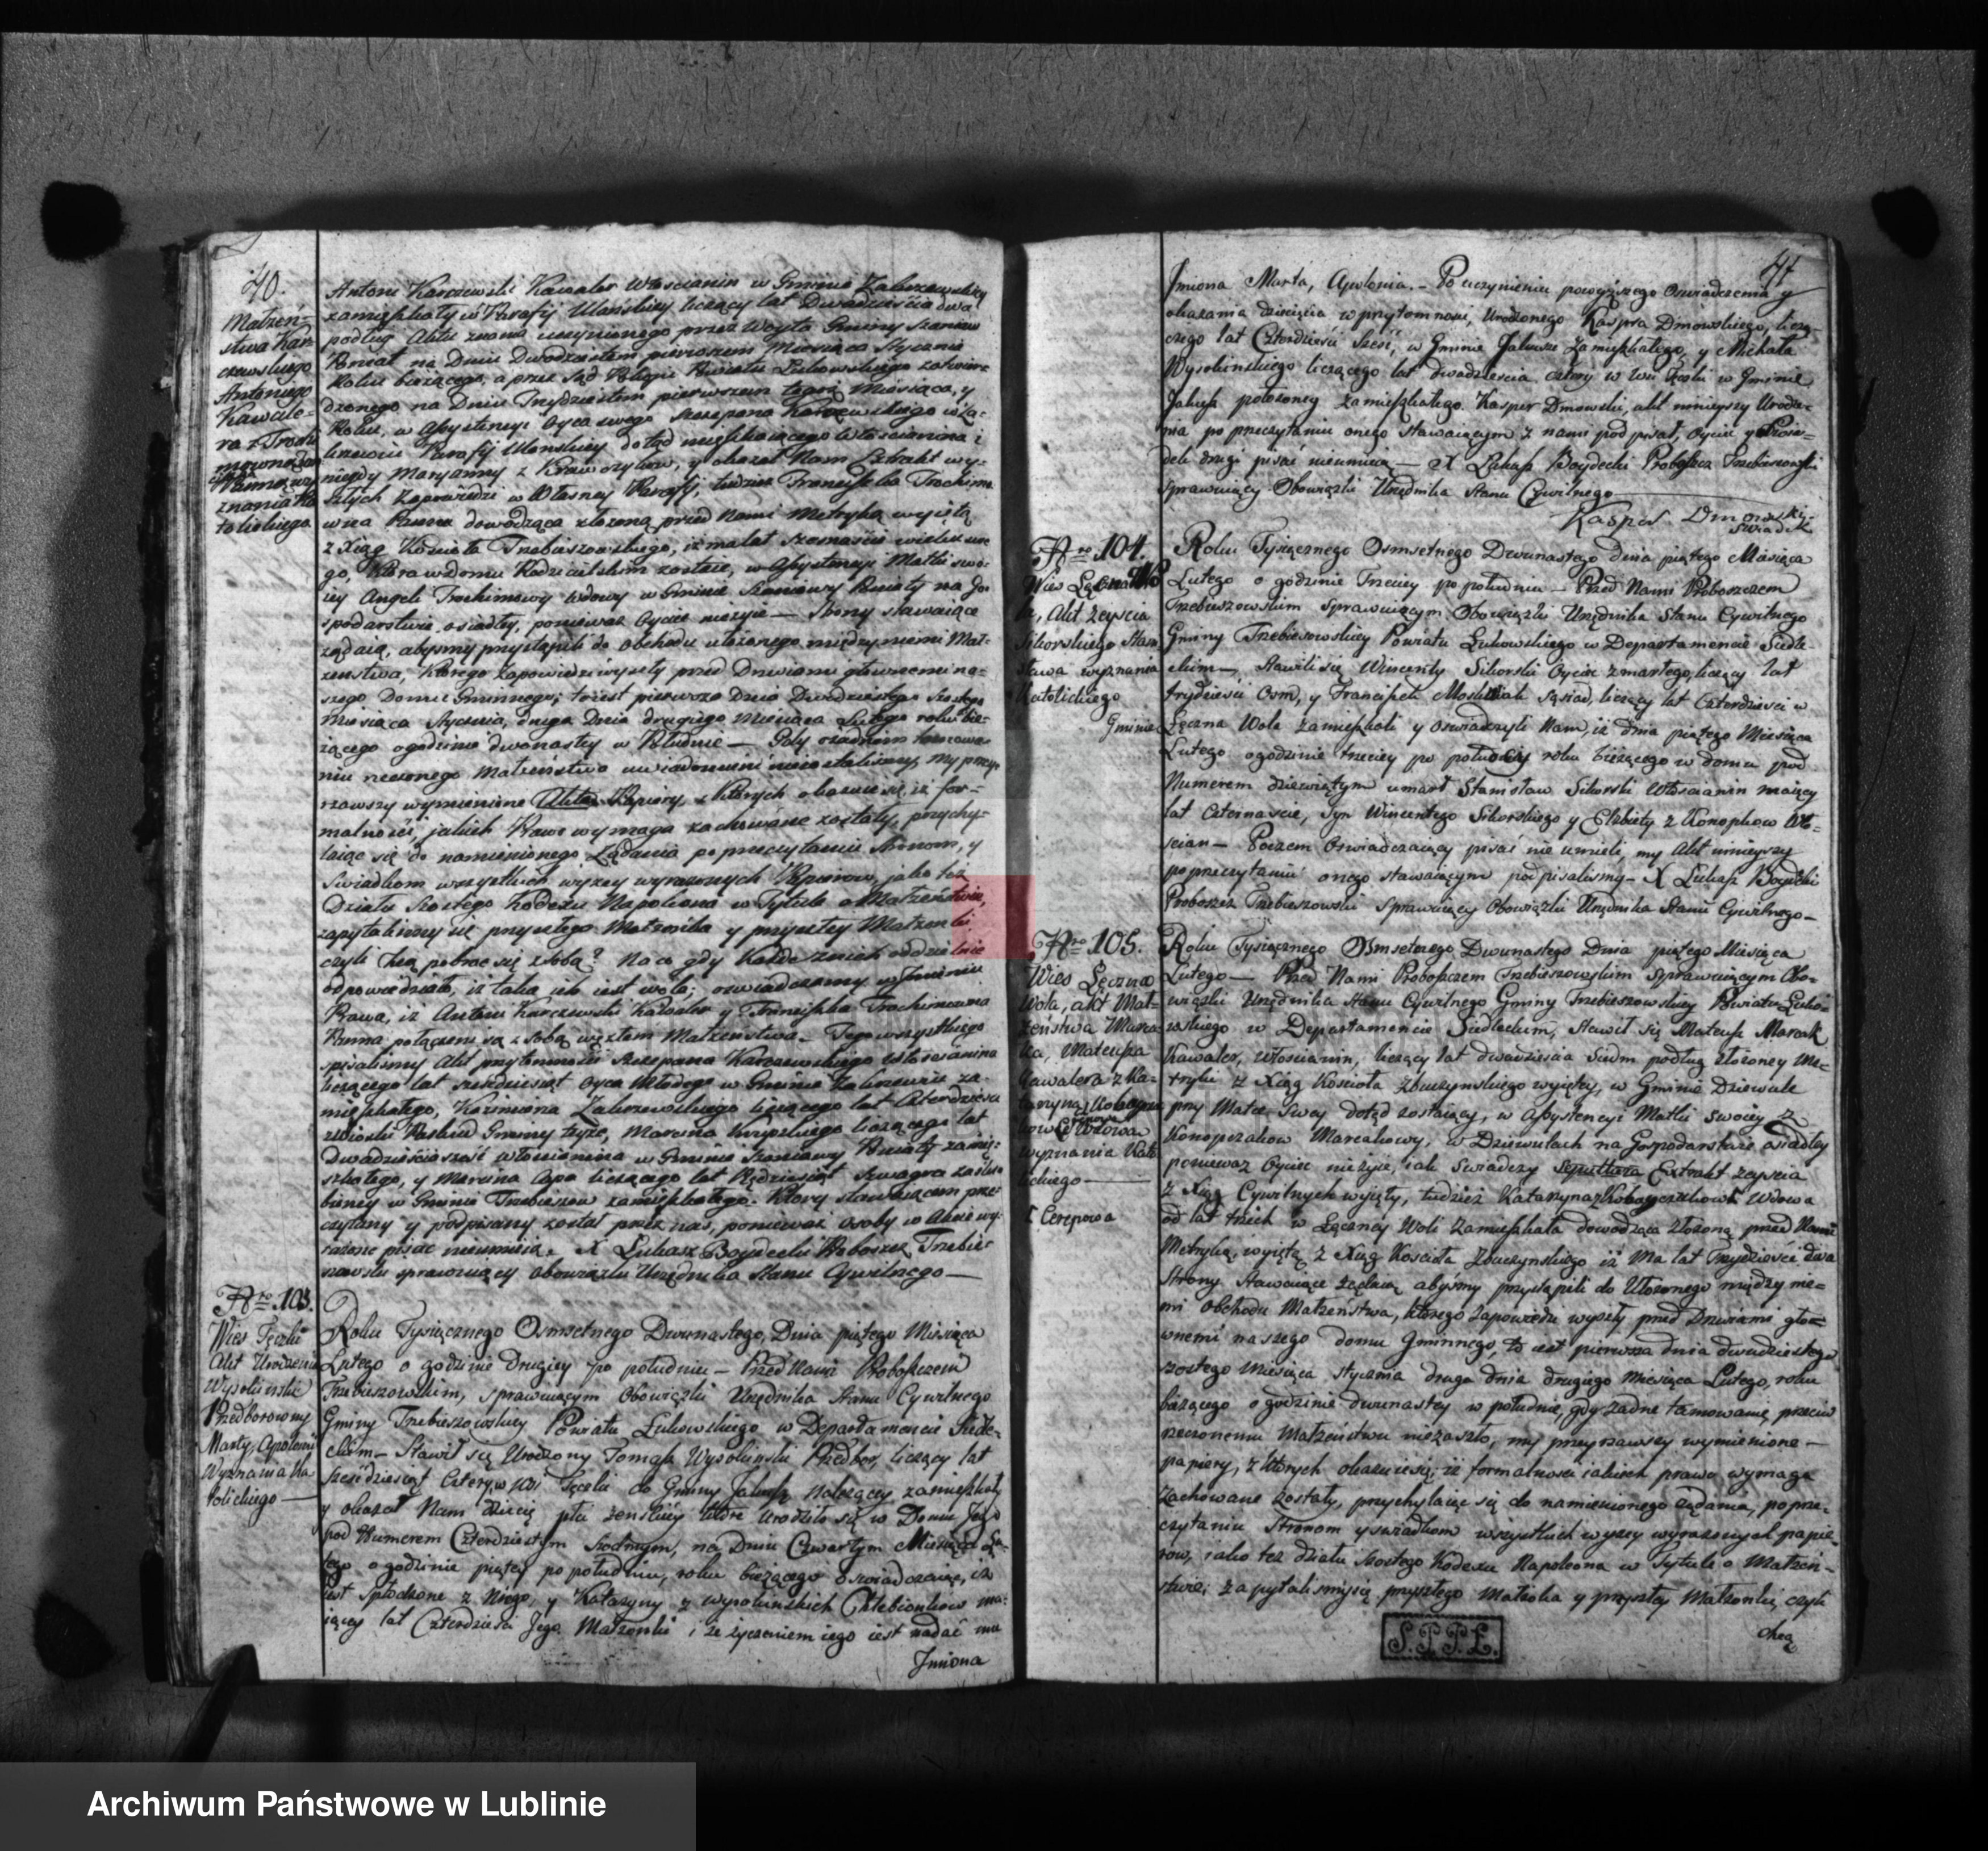 40.
Małżeń-
stwa Kar
czewskiego
Antoniego
Kawale-
ra z Trochi
Panną wy
znania Ka
tolickiego
Antoni Karczewski Kawaler Włoscianin w Gminie Zakrzewskiey
zamieszkały w Parafij Ulańskiey liczący lat Dwadzieścia dwa
podług Aktu znania uczynionego przez Woyta Gminy Szaniaw
Powiat na Dniu Dwudziestem pierwszem Miesiąca Stycznia
Roku bieżącego, a przez Sąd Pokoju Powiatu Łukowskiego zatwier-
dzonego na Dniu Trzydziestem pierwszem tegoż Miesiąca, y
Roku, w assystencyi Oyca swego Szczepana Karczewskiego w Za-
krzewie Parafij Ulanskiey dotąd mieszkaiącego Włoscianina i
niegdy Maryanny z Krawczyków, y okazał Nam Extrakt wy-
szłych Zapowiedzi w Własney Parafij, tudzież Franciszka Trochimo
wna Panna dowodząca złożoną przed Nami Metryką wyiętą
z Xiąg Kościoła Trzebieszowskiego, iż ma lat Szesnaście wieku swe
go, Która w domu Rodzicielskim zostaie, w assystencyi Matki swo-
iey Angeli Trochimowy wdowy w Gminie Szaniawy Poniaty na Go
spodarstwie osiadłey, ponieważ Oyciec nieżyie — Strony stawaiące
żądaią, abyśmy przystąpili do obchodu ułożonego między niemi Mał-
żeństwa, Którego Zapowiedzi wyszły przed Drzwiami głównemi na-
szego Domu Gminnego; toiest pierwsza Dnia Dwudziestego Szóstego
Miesiąca Stycznia, druga Dnia drugiego Miesiąca Lutego roku bie-
żącego o godzinie dwunastey w Południe — Gdy o żadnem tamowa-
niu rzeczonego Małżeństwa uwiadomieni niezostaliśmy, My przy-
rzawszy wymienione Papiery, z których okazuie się iż for-
malności, jakich Prawo wymaga zachowane zostały, przychy-
laiąc się do namienionego Żądania po przeczytaniu Stronom, y
Swiadkom wszystkich wyżey wyrażonych Papierow, jako też
Działu Szóstego Kodexu Napoleona w Tytule o Małżeństwie,
zapytaliśmy się przyszłego Małżonka y przyszłey Małżonki
czyli chcą pobrac się z sobą? na co gdy Każde z nich oddzielnie
odpowiedziało, iż taka ich iest wola; oswiadczamy w Imieniu
Prawa, iż Antoni Karczewski Kawaler y Franciszka Trochimowna
Panna połączeni są z sobą węzłem Małżenstwa. Tego wszystkiego
spisaliśmy Akt przytomności Szczepana Karczewskiego włoscianina
liczącego lat sześćdziesiąt Oyca Młodego w Gminie Zakrzewie za-
mieszkałego, Kazimierza Zakrzewskiego liczącego lat Czterdzieści
Gminy teyże, Marcina liczącego lat
Dwadzieścia sześć włoscianina w Gminie Szaniawy Poniaty zamie-
szkałego, y Marcina liczącego lat Szwagra
w Gminie Trzebieszow zamieszkałego. Który stawaiącem prze-
czytany y podpisany został przez nas, ponieważ osoby w Akcie wy-
rażone pisać nieumieią. X Łukasz Boydecki Proboszcz Trzebie-
szowski sprawuiący obowiązki Urzędnika Stanu Cywilnego —
Nro 103.
Wieś Tęczki
Akt Urodzenia
Wysokińskie
Przedborowny
Marty, Apolonij
Wyznania Ka
tolickiego —
Roku Tysiącznego Osmsetnego Dwunastego, Dnia piątego Miesiąca
Lutego o godzinie drugiey po południu — Przed Nami Proboszczem
Trzebieszowskim, sprawuiącym Obowiązki Urzędnika Stanu Cywilnego
Gminy Trzebieszowskiey Powiatu Łukowskiego w Departamencie Siedle-
ckim — Stawił się Urodzony Tomasz Wysokiński Przedbor, liczący lat
Sześćdziesiąt Cztery, w Wsi Tęczki do Gminy Jakusz należącey zamieszkały
y okazał Nam dziecię płci żenskiey które urodziło się w Domu Jego
pod Numerem Czterdziestym Siodmym, na Dniu Czwartym Miesiąca Lu-
tego o godzinie piątey po południu, roku bieżącego oswiadczaiąc, iż
iest spłodzone z Niego, y Katarzyny z Wysokińskich Chlebionkow ma-
iącey lat Czterdzieści Jego Małżonki, i że życzeniem iego iest nadać mu
Jmiona
41
Jmiona Marta, Apolonia. — Po uczynieniu powyższego Oswiadczenia y
okazania dziecięcia w przytomnosci, Urodzonego Kaspra Dmowskiego, liczą-
cego lat Czterdzieści Sześć, w Gminie Jakusze Zamieszkałego, y Michała
Wysokinskiego liczącego lat dwadzieścia cztery w Wsi w Gminie
Jakusze położoney Zamieszkałego. Kasper Dmowski, akt ninieyszy Urodze-
nia po przeczytaniu onego stawaiącym z nami podpisał, Oyciec y Świa-
dek drugi pisać nieumieią — X Łukasz Boydecki Proboszcz Trzebieszowski
sprawuiący Obowiązki Urzędnika Stanu Cywilnego
Kasper Dmowski
Swiadek
Nro 104.
Wieś Łęczna Wo
la, Akt Zeyscia
Sikorskiego Stani
sława wyznania
Katolickiego
Gminie
Roku Tysiącznego Osmsetnego Dwunastego dnia piątego Miesiąca
Lutego o godzinie Trzeciey po południu — Przed Nami Proboszczem
Trzebieszowskim Sprawuiącym Obowiązki Urzędnika Stanu Cywilnego
Gminy Trzebiesowskiey Powiatu Łukowskiego w Departamencie Siedle-
ckim —, stawili się Wincenty Sikorski Oyciec zmarłego, liczący lat
trzydzieści Osm, y Franciszek Sąsiad, liczący lat Czterdzieści w
Łęczna Wola zamieszkali y oswiadczyli Nam, iż dnia piątego Miesiąca
Lutego o godzinie trzeciey po południu roku bieżącego w domu pod
Numerem dziewiątym umarł Stanisław Sikorski Włoscianin maiący
lat Czternascie, syn Wincentego Sikorskiego y Elżbiety z Konopkow Wło-
ścian — Poczem Oswiadczaiący pisać nie umieli, my Akt ninieyszy
po przeczytaniu onego stawaiącym podpisalismy — X Łukasz Boydecki
Proboszcz Trzebieszowski sprawuiący Obowiązki Urzędnika Stanu Cywilnego —
Nro 105.
Wieś Łęczna
Wola, akt Mał-
żeństwa Marca
ka, Mateusza
Kawalera z Ka-
tarzyną
Wdową
wyznania Kato
lickiego —
z Cerepowa
Roku Tysiącznego Osmsetnego Dwunastego Dnia piątego Miesiąca
Lutego — Przed Nami Proboszczem Trzebieszowskim sprawuiącym Obo-
wiązki Urzędnika Stanu Cywilnego Gminy Trzebieszowskiey Powiatu Łuko-
wskiego w Departamencie Siedleckim, stawił się Mateusz Marcak
Kawaler, Włoscianin, liczący lat dwadzieścia Siedm podług złożoney Me-
tryki z Xiąg Kościoła Zbuczynskiego wyiętey, w Gminie Dziewule
przy Matce swey dotąd zostaiący, w assystencyi Matki swoiey z
Konopczakow Marcakowy, w Dziewułach na Gospodarstwie osiadłey
ponieważ Oyciec nie żyie, iak swiadczy Extrakt zeyscia
z Xiąg Cywilnych wyięty, tudzież Katarzyna Wdowa
od lat trzech w Łęczney Woli Zamieszkała dowodząca złożoną przed Nami
Metryką, wyiętą z Xiąg Kościoła Zbuczynskiego iż ma lat Trzydzieści dwa
Strony stawaiące żądaią abyśmy przystąpili do Ułożonego między nie-
mi obchodu Małżeństwa, którego Zapowiedzi wyszły przed Drzwiami głó-
wnemi naszego domu Gminnego, to iest pierwsza dnia dwudziestego
szóstego Miesiąca stycznia druga dnia drugiego Miesiąca Lutego, roku
bieżącego o godzinie dwunastey w południe, gdy żadne tamowanie przeciw
rzeczonemu Małżeństwu niezaszło, my przyrzawszy wymienione —
papiery, z których okazuie się, iż formalności iakich prawo wymaga
Zachowane zostały, przychylaiąc się do namienionego Żądania, po prze-
czytaniu Stronom y swiadkom wszystkich wyżey wyrażonych papie-
rów, iako też działu Szóstego Kodexu Napoleona w Tytule o Małżeń-
stwie; zapytaliśmy się przyszłego Małżonka y przyszłey Małżonki, czyli
chcą
S.P.P.Ł.
Archiwum Państwowe w Lublinie